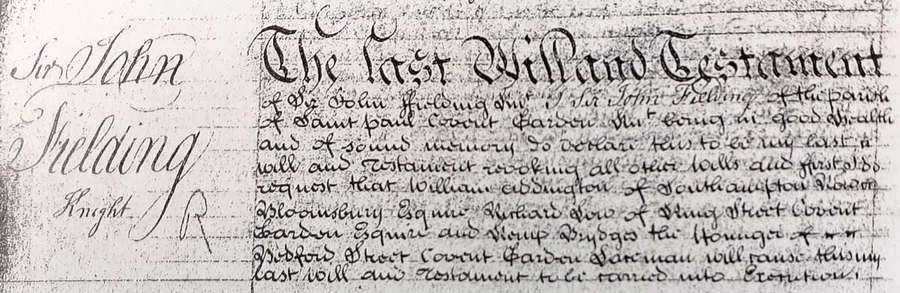 Sir John
Fielding
Knight
The last Will and Testament
of Sir John Fielding Knt. I Sir John Fielding of the parish
of Saint Paul Covent Garden Knt. being in good Health
and of sound memory do declare this to be my last
will and Testament revoking all other Wills and first I do
request that William Addington of Southampton Row
Bloomsbury Esquire Richard Low of King Street Covent
Garden Esquire and Kemp Bridges the Younger of
Bedford Street Covent Garden Laceman will cause this my
last will and Testament to be carried into Execution